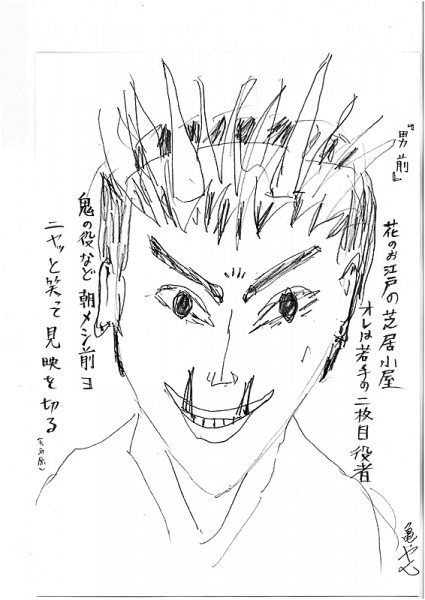 『男前』
花のお江戸の芝居小屋
オレは若手の二枚目役者
鬼の役など朝メシ前ヨ
ニヤッと笑って見映を切る